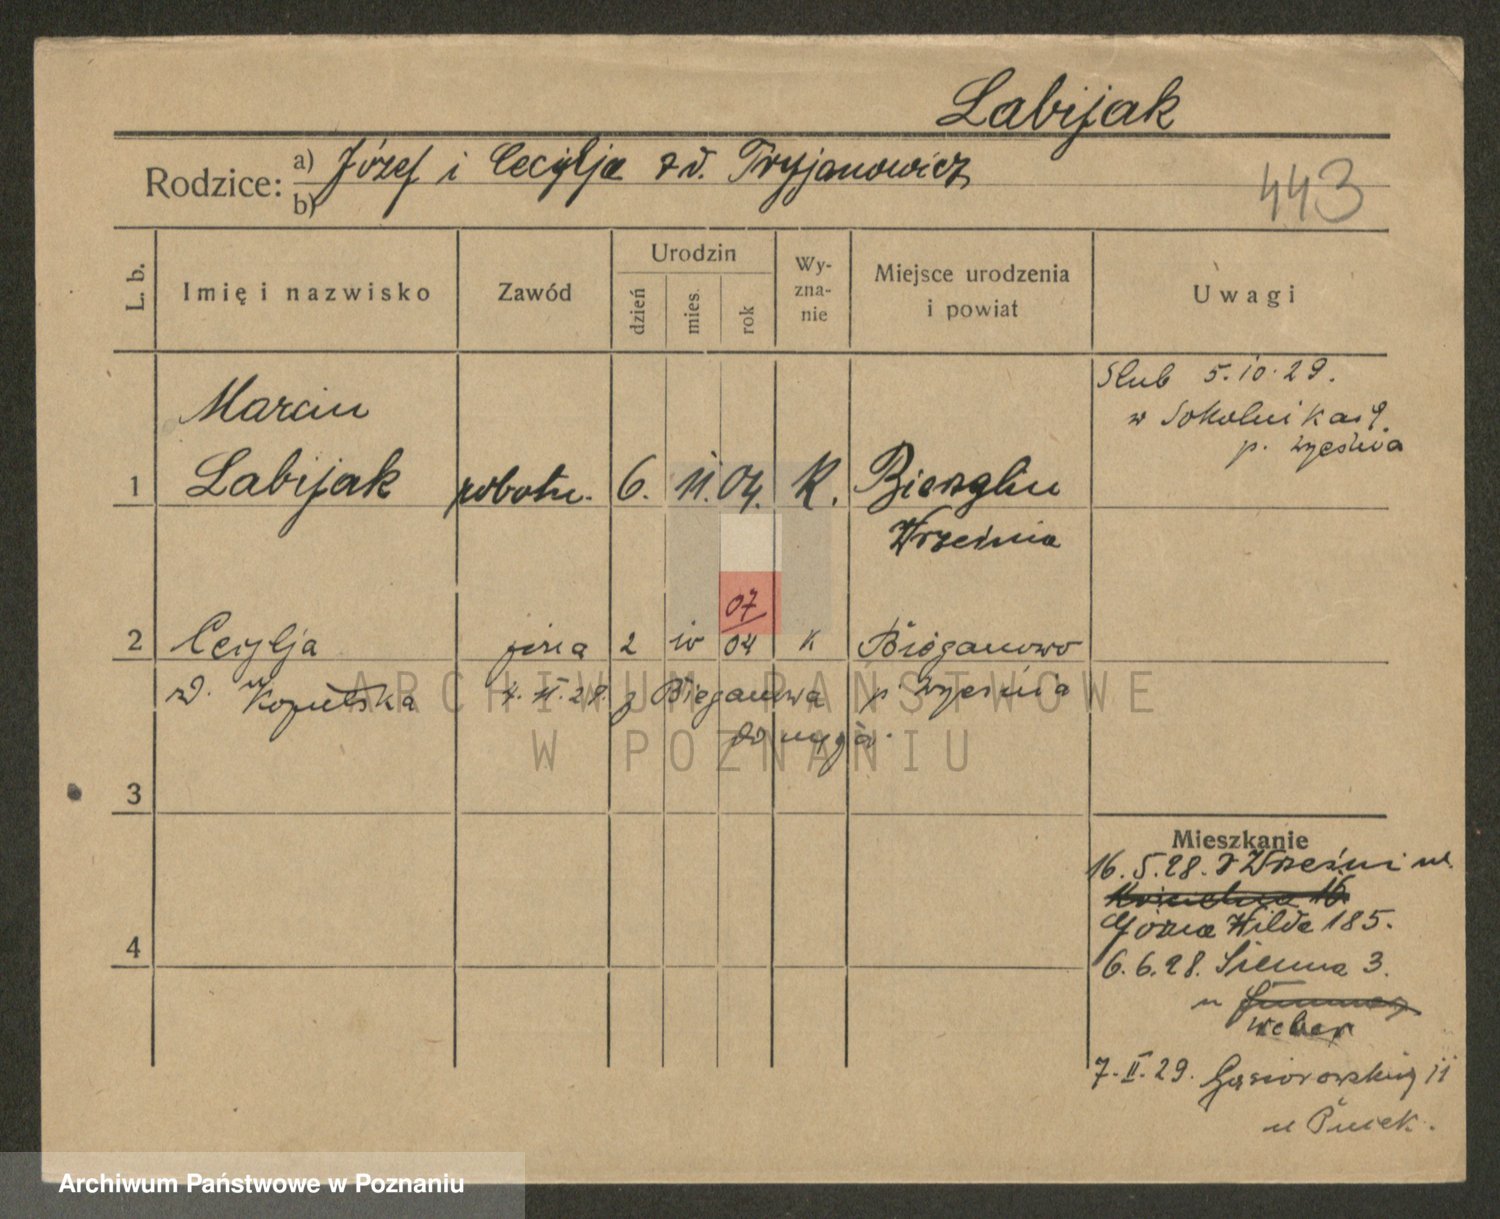 Labijak
Rodzice: a) Józef i Cecylja z d. Tryjanowicz
b)
443
L. b.
Imię i nazwisko
Zawód
Urodzin
dzień
mies.
rok
Wy-
zna-
nie
Miejsce urodzenia
i powiat
Uwagi
Slub 5.10.29.
w Sokolnikach
p.
Marcin
1 Labijak robotn. 6. 11. 04. K. Bierzglin
Września
07
2 Cecylja 2 10 04 K Bieganowo
z d. 4. 11. 28. z Bieganowa p.
ARCHIWUM PAŃSTWOWE
W POZNANIU
3
Mieszkanie
16.5.28. z Wrześni ul.
16
Górna Wilda 185.
4
6.6.28. Sienna 3.
u
Weber
7.II.29. Gąsiorowskich 11
u
Archiwum Państwowe w Poznaniu